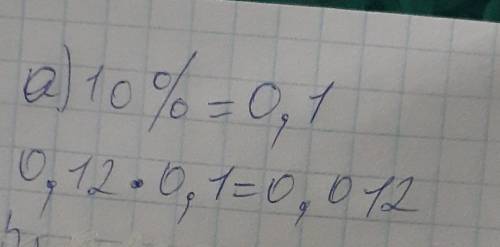 а) 10% = 0,1
0,12 · 0,1 = 0,012